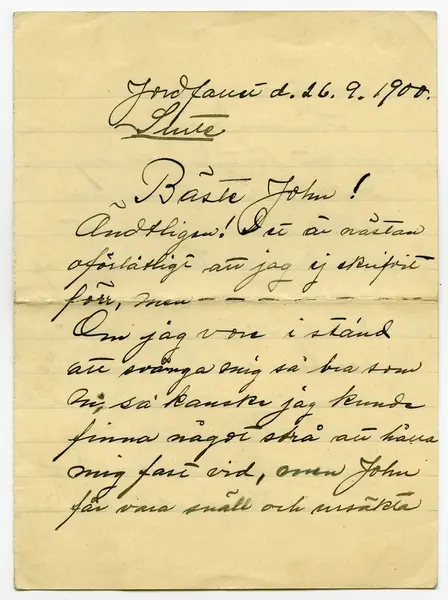 d. 26. 9. 1900.
Slite
Bäste John!
Ändtligen! Det är nästan
oförlåtligt att jag ej skrifvit
förr, men – – – – – – –
Om jag vore i stånd
att svänga mig så bra som
Ni, så kanske jag kunde
finna något strå att hålla
mig fast vid, men John
får vara snäll och ursäkta